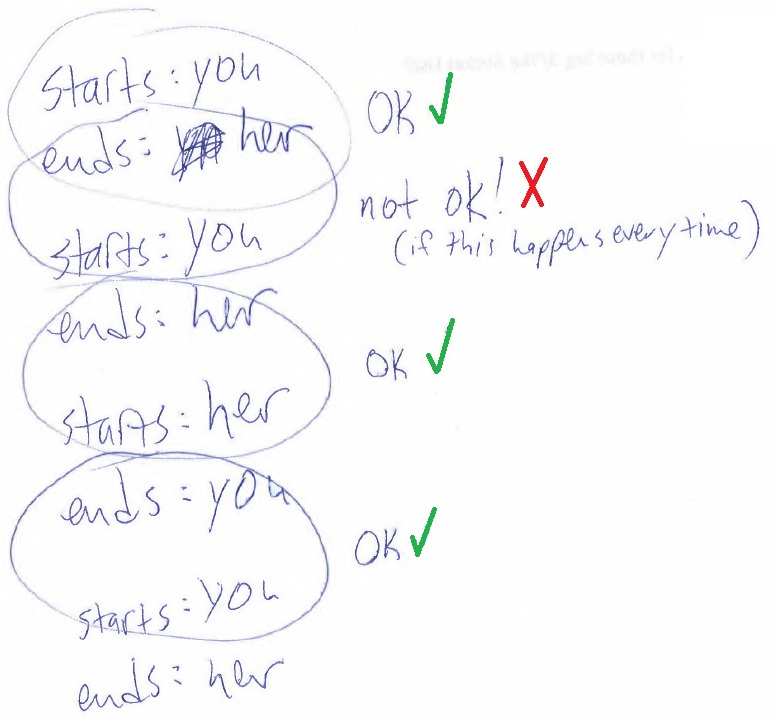 starts: you
OK ✓
ends: her
not ok! X
(if this happens every time)
starts: you
ends: her
OK ✓
starts: her
ends: you
OK ✓
starts: you
ends: her